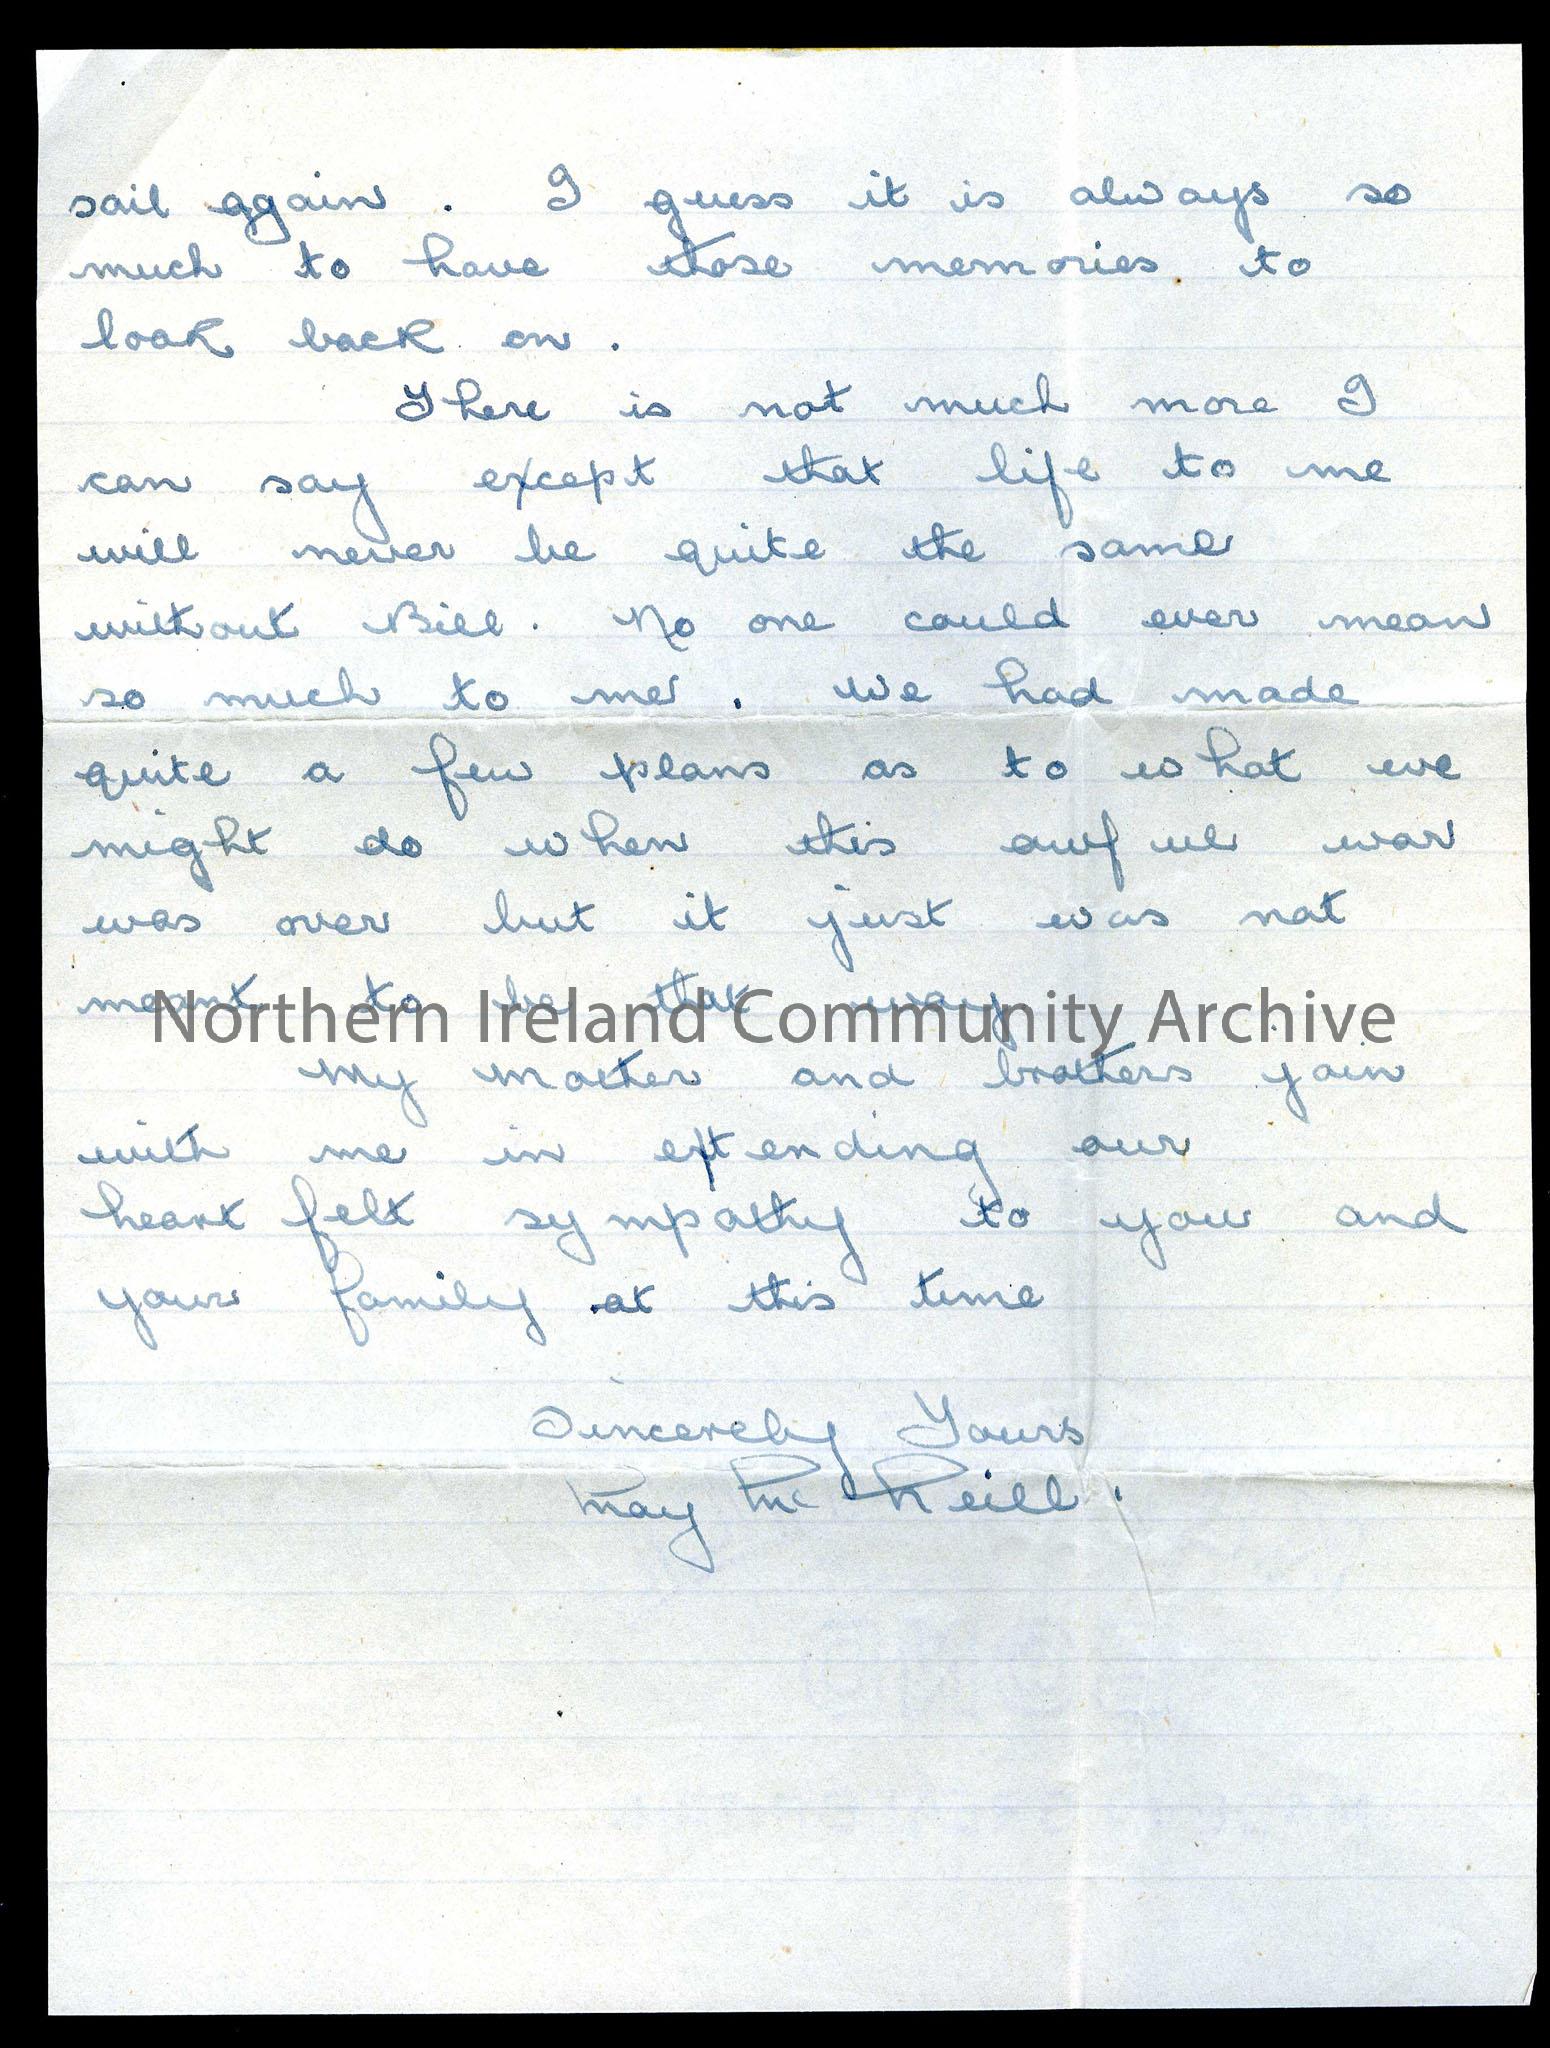 sail again. I guess it is always so
much to have those memories to
look back on.
There is not much more I
can say except that life to me
will never be quite the same
without Bill. No one could ever mean
so much to me. We had made
quite a few plans as to what we
might do when this awful war
was over but it just was not
meant to be that way
Northern Ireland Community Archive
My Mother and brothers join
with me in extending our
heart felt sympathy to you and
your family at this time
Sincerely Yours
May McNeill.